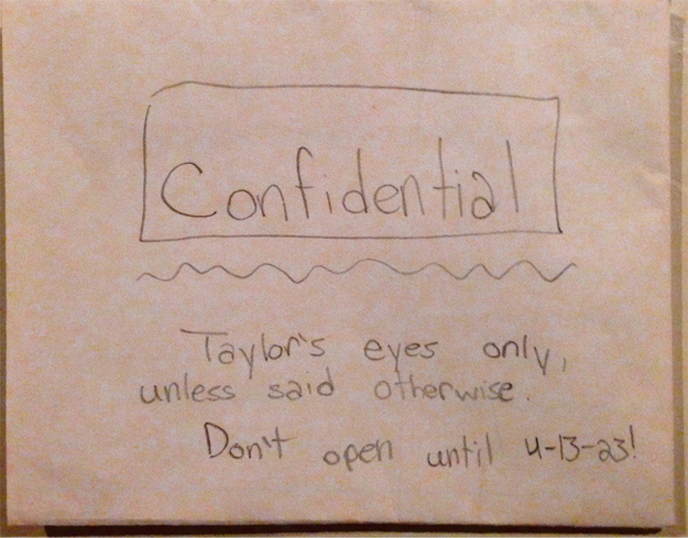 Confidential
Taylor's eyes only,
unless said otherwise.
Don't open until 4-13-23!